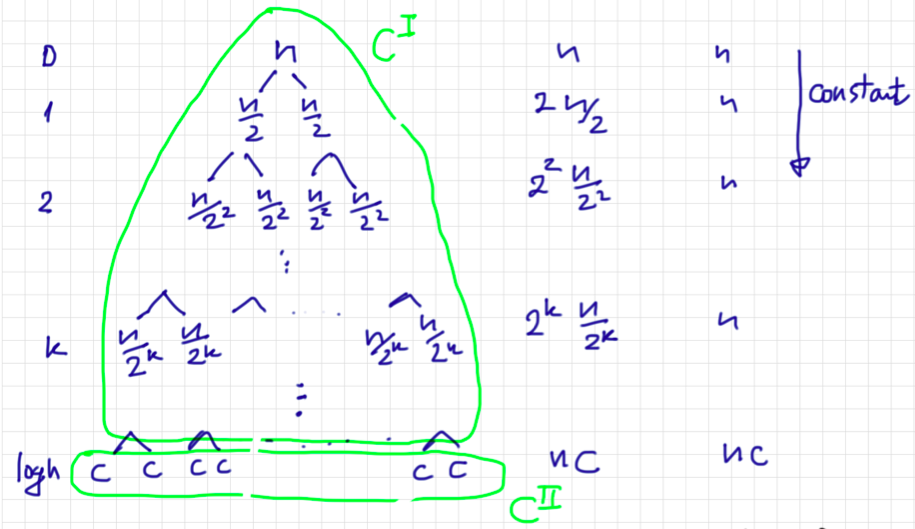 0 n n n
C^I
1 n/2 n/2 2 n/2 n constant
2 n/2^2 n/2^2 n/2^2 n/2^2 2^2 n/2^2 n
⋮
k n/2^k n/2^k . . . n/2^k n/2^k 2^k n/2^k n
⋮
logn c c c c c c nc nc
C^II